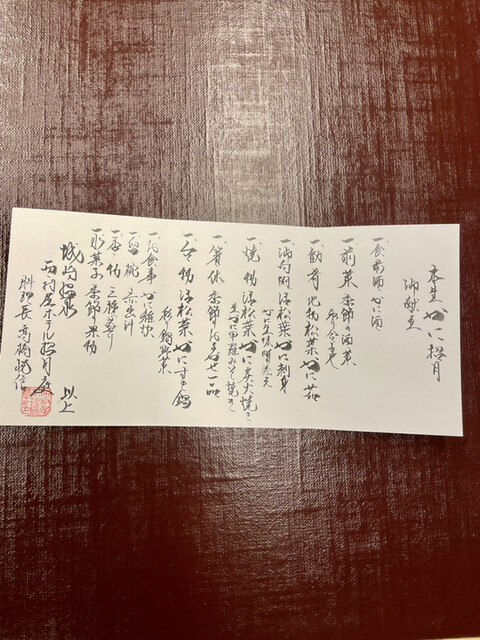 本生かに招月
御献立
一食前酒 かに酒
一前菜 季節の酒菜
彩り合せ
一酢肴 地物松葉かに一品
一御向附 活松葉かに刺身
一焼物 活松葉かに炭火焼き
生かに甲羅みそ焼き
一箸休 季節の一品
一台物 活松葉かにすき鍋
彩り鍋野菜
一御食事 かに雑炊
一留椀 赤出汁
一香物 三種盛り
一水菓子 季節果物
以上
城崎温泉
西村屋ホテル招月庭
料理長 高橋悦信